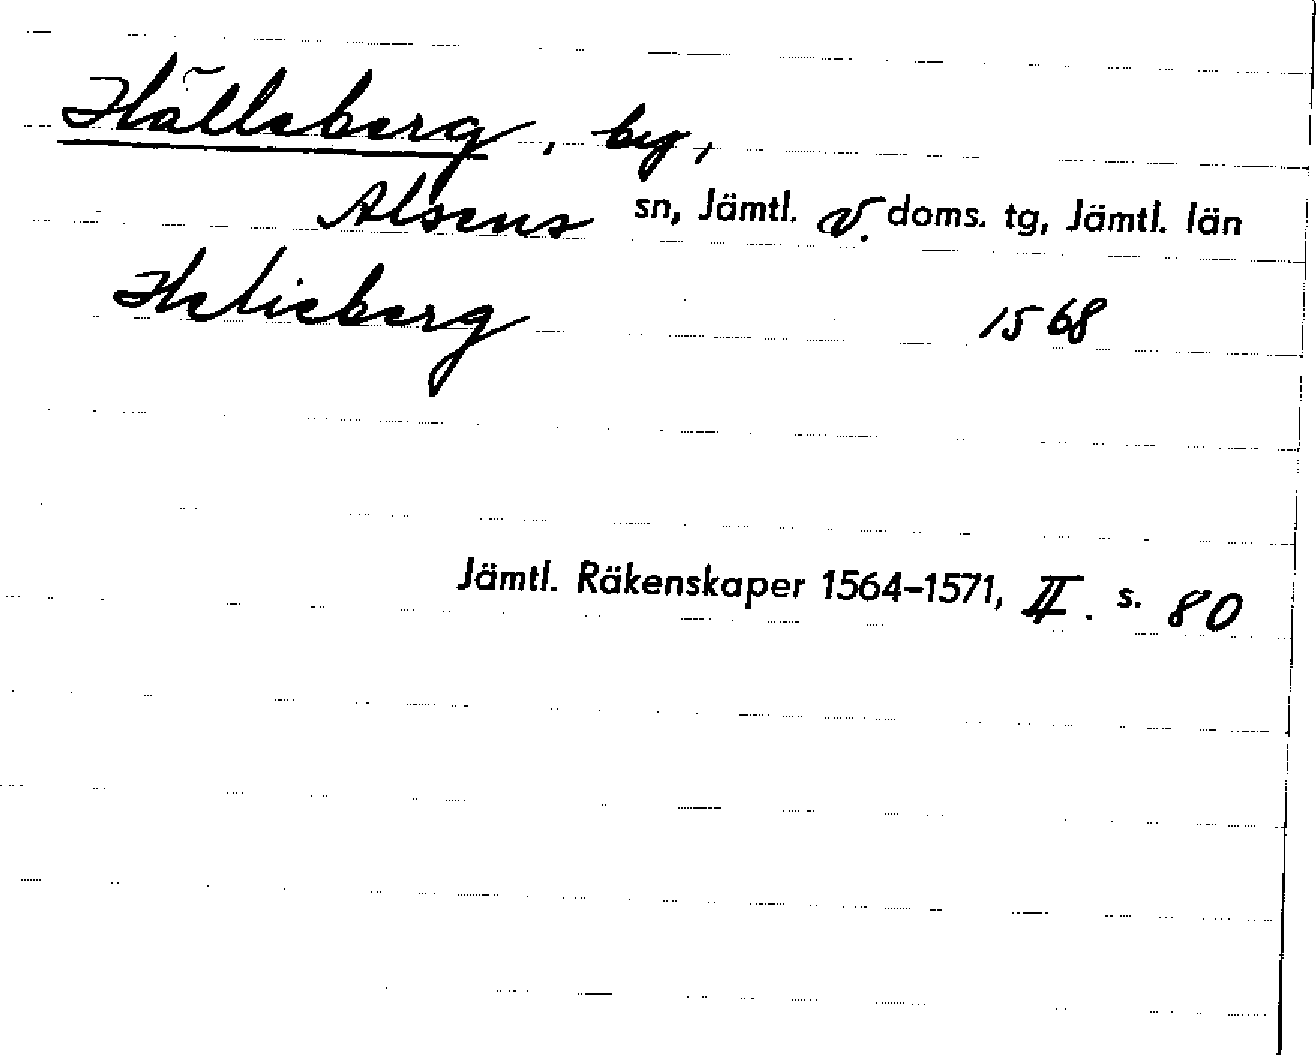 Hälleberg, by,
Alsens sn, Jämtl. v. doms. tg, Jämtl. län
Helieberg 1568
Jämtl. Räkenskaper 1564-1571, II. s. 80